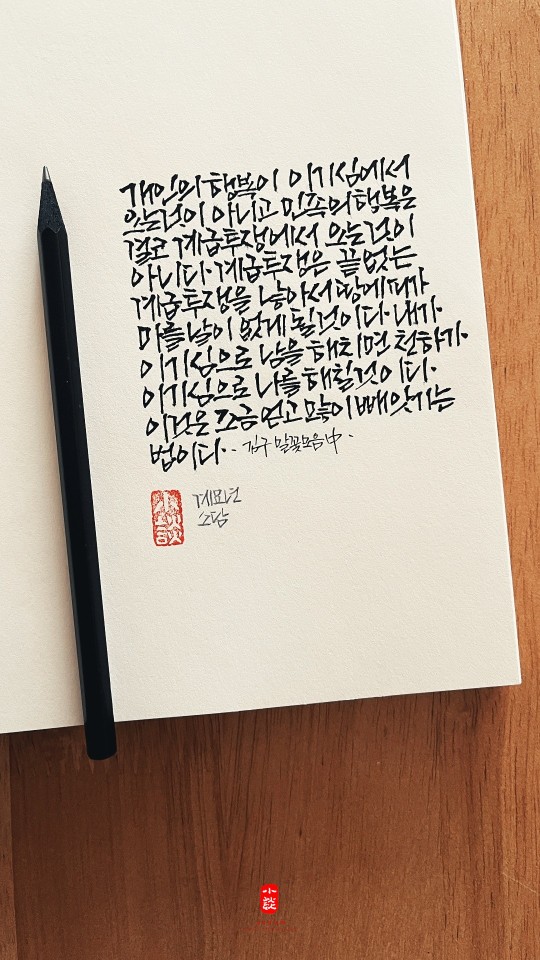 개인의 행복이 이기심에서
오는것이 아니고 민족의 행복은
결코 계급투쟁에서 오는것이
아니다. 계급투쟁은 끝없는
계급투쟁을 낳아서 땅에 피가
마를 날이 없게 될것이다. 내가
이기심으로 남을 해치면 천하가
이기심으로 나를 해칠것이다.
이것은 조금 얻고 많이 빼앗기는
법이다.. 김구 말꽃모음 中.
계묘년
소담
小談
小談